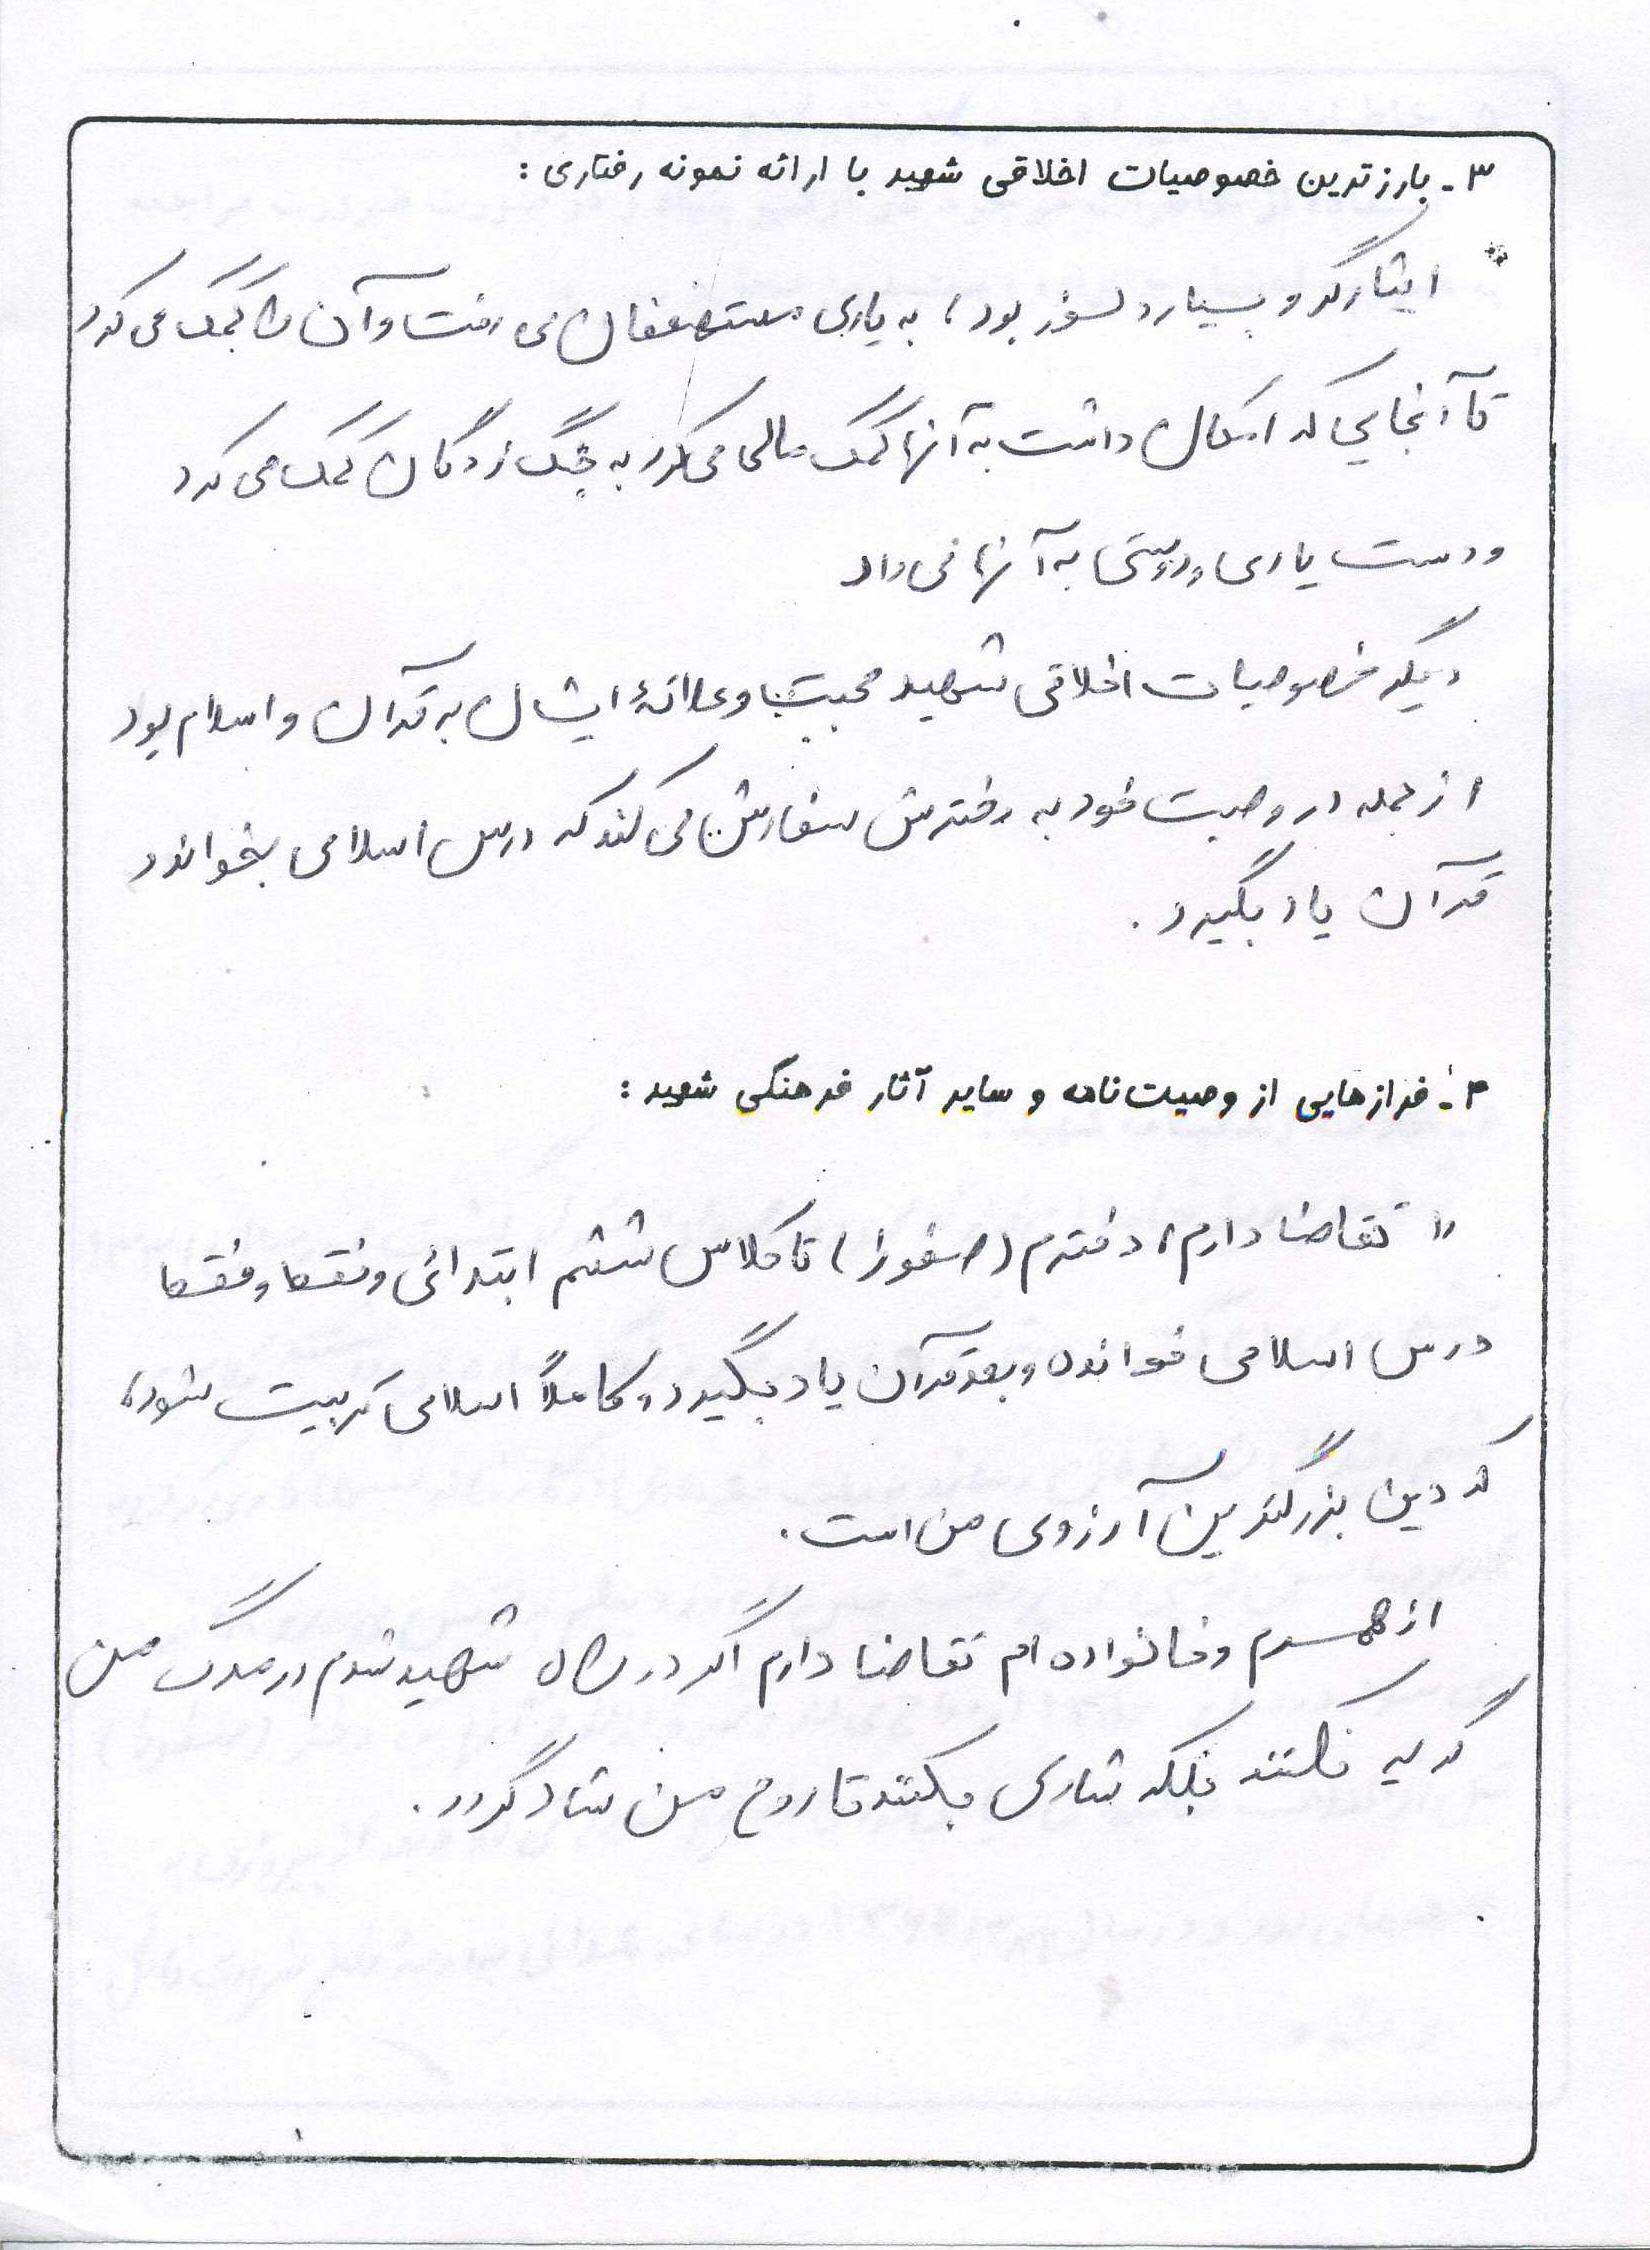 ۳ـ بارزترین خصوصیات اخلاقی شهید با ارائه نمونه رفتاری :
ایثارگر و بسیار دلسوز بود ، به یاری مستضعفان می رفت و آن را کمک می کرد
تا آنجایی که امکان داشت به آنها کمک مالی می کرد به جنگ زدگان کمک می کرد
و دست یاری و دوستی به آنها می داد
دیگر خصوصیات اخلاقی شهید محبت و علاقۀ ایشان به قرآن و اسلام بود
از جمله در وصیت خود به دخترش سفارش می کند که درس اسلامی بخواند و
قرآن یاد بگیرد .
۴ـ فرازهایی از وصیت‌نامه و سایر آثار فرهنگی شهید :
" تقاضا دارم ، دخترم ( صفورا ) تا کلاس ششم ابتدائی و فقط و فقط
درس اسلامی خوانده و بعد قرآن یاد بگیرد و کاملاً اسلامی تربیت شود ،
که دین بزرگترین آرزوی من است .
از همسرم و خانواده ام تقاضا دارم اگر در راه شهید شدم در مرگ من
گریه نکنند بلکه شادی بکنند تا روح من شاد گردد .